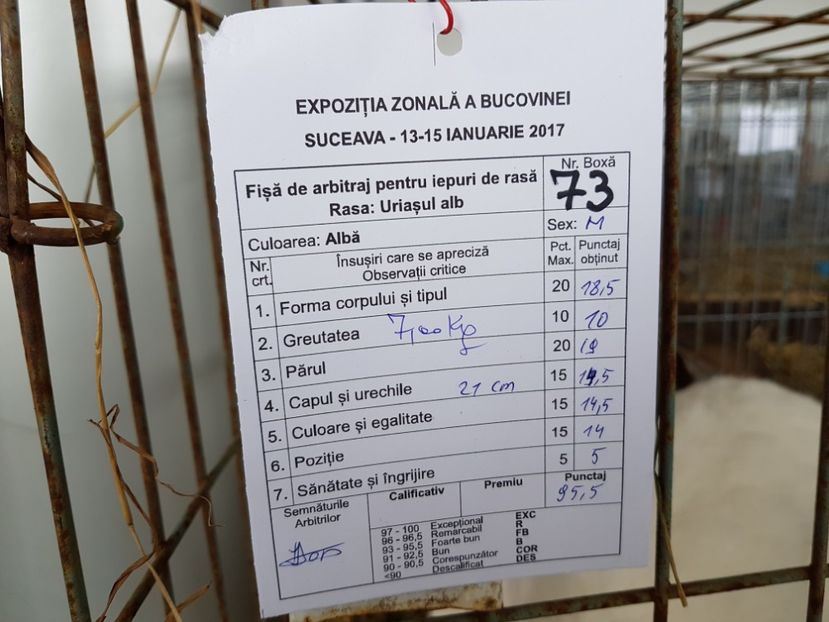 EXPOZIȚIA ZONALĂ A BUCOVINEI
SUCEAVA - 13-15 IANUARIE 2017
Fișă de arbitraj pentru iepuri de rasă
Rasa: Uriașul alb
Nr. Boxă
73
Culoarea: Albă
Sex: M
Nr. crt.
Însușiri care se apreciză
Observații critice
Pct. Max.
Punctaj obținut
1. Forma corpului și tipul 20 18,5
2. Greutatea 7,00 Kg 10 10
3. Părul 20 19
4. Capul și urechile 21 cm 15 14,5
5. Culoare și egalitate 15 14,5
6. Poziție 15 14
7. Sănătate și îngrijire 5 5
Semnăturile Arbitrilor
Calificativ
Premiu
Punctaj
95,5
97 - 100 Excepțional EXC
96 - 96,5 Remarcabil R
93 - 95,5 Foarte bun FB
91 - 92,5 Bun B
90 - 90,5 Corespunzător COR
<90 Descalificat DES